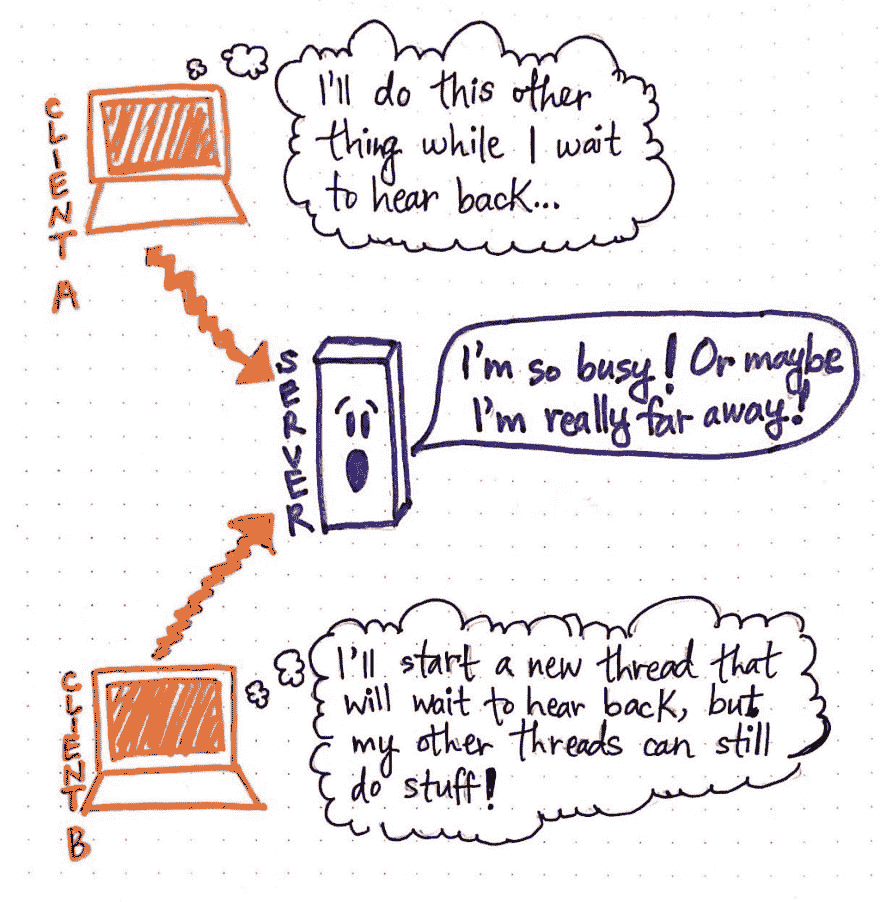 CLIENT A
I'll do this other
thing while I wait
to hear back...
SERVER
I'm so busy! Or maybe
I'm really far away!
CLIENT B
I'll start a new thread that
will wait to hear back, but
my other threads can still
do stuff!